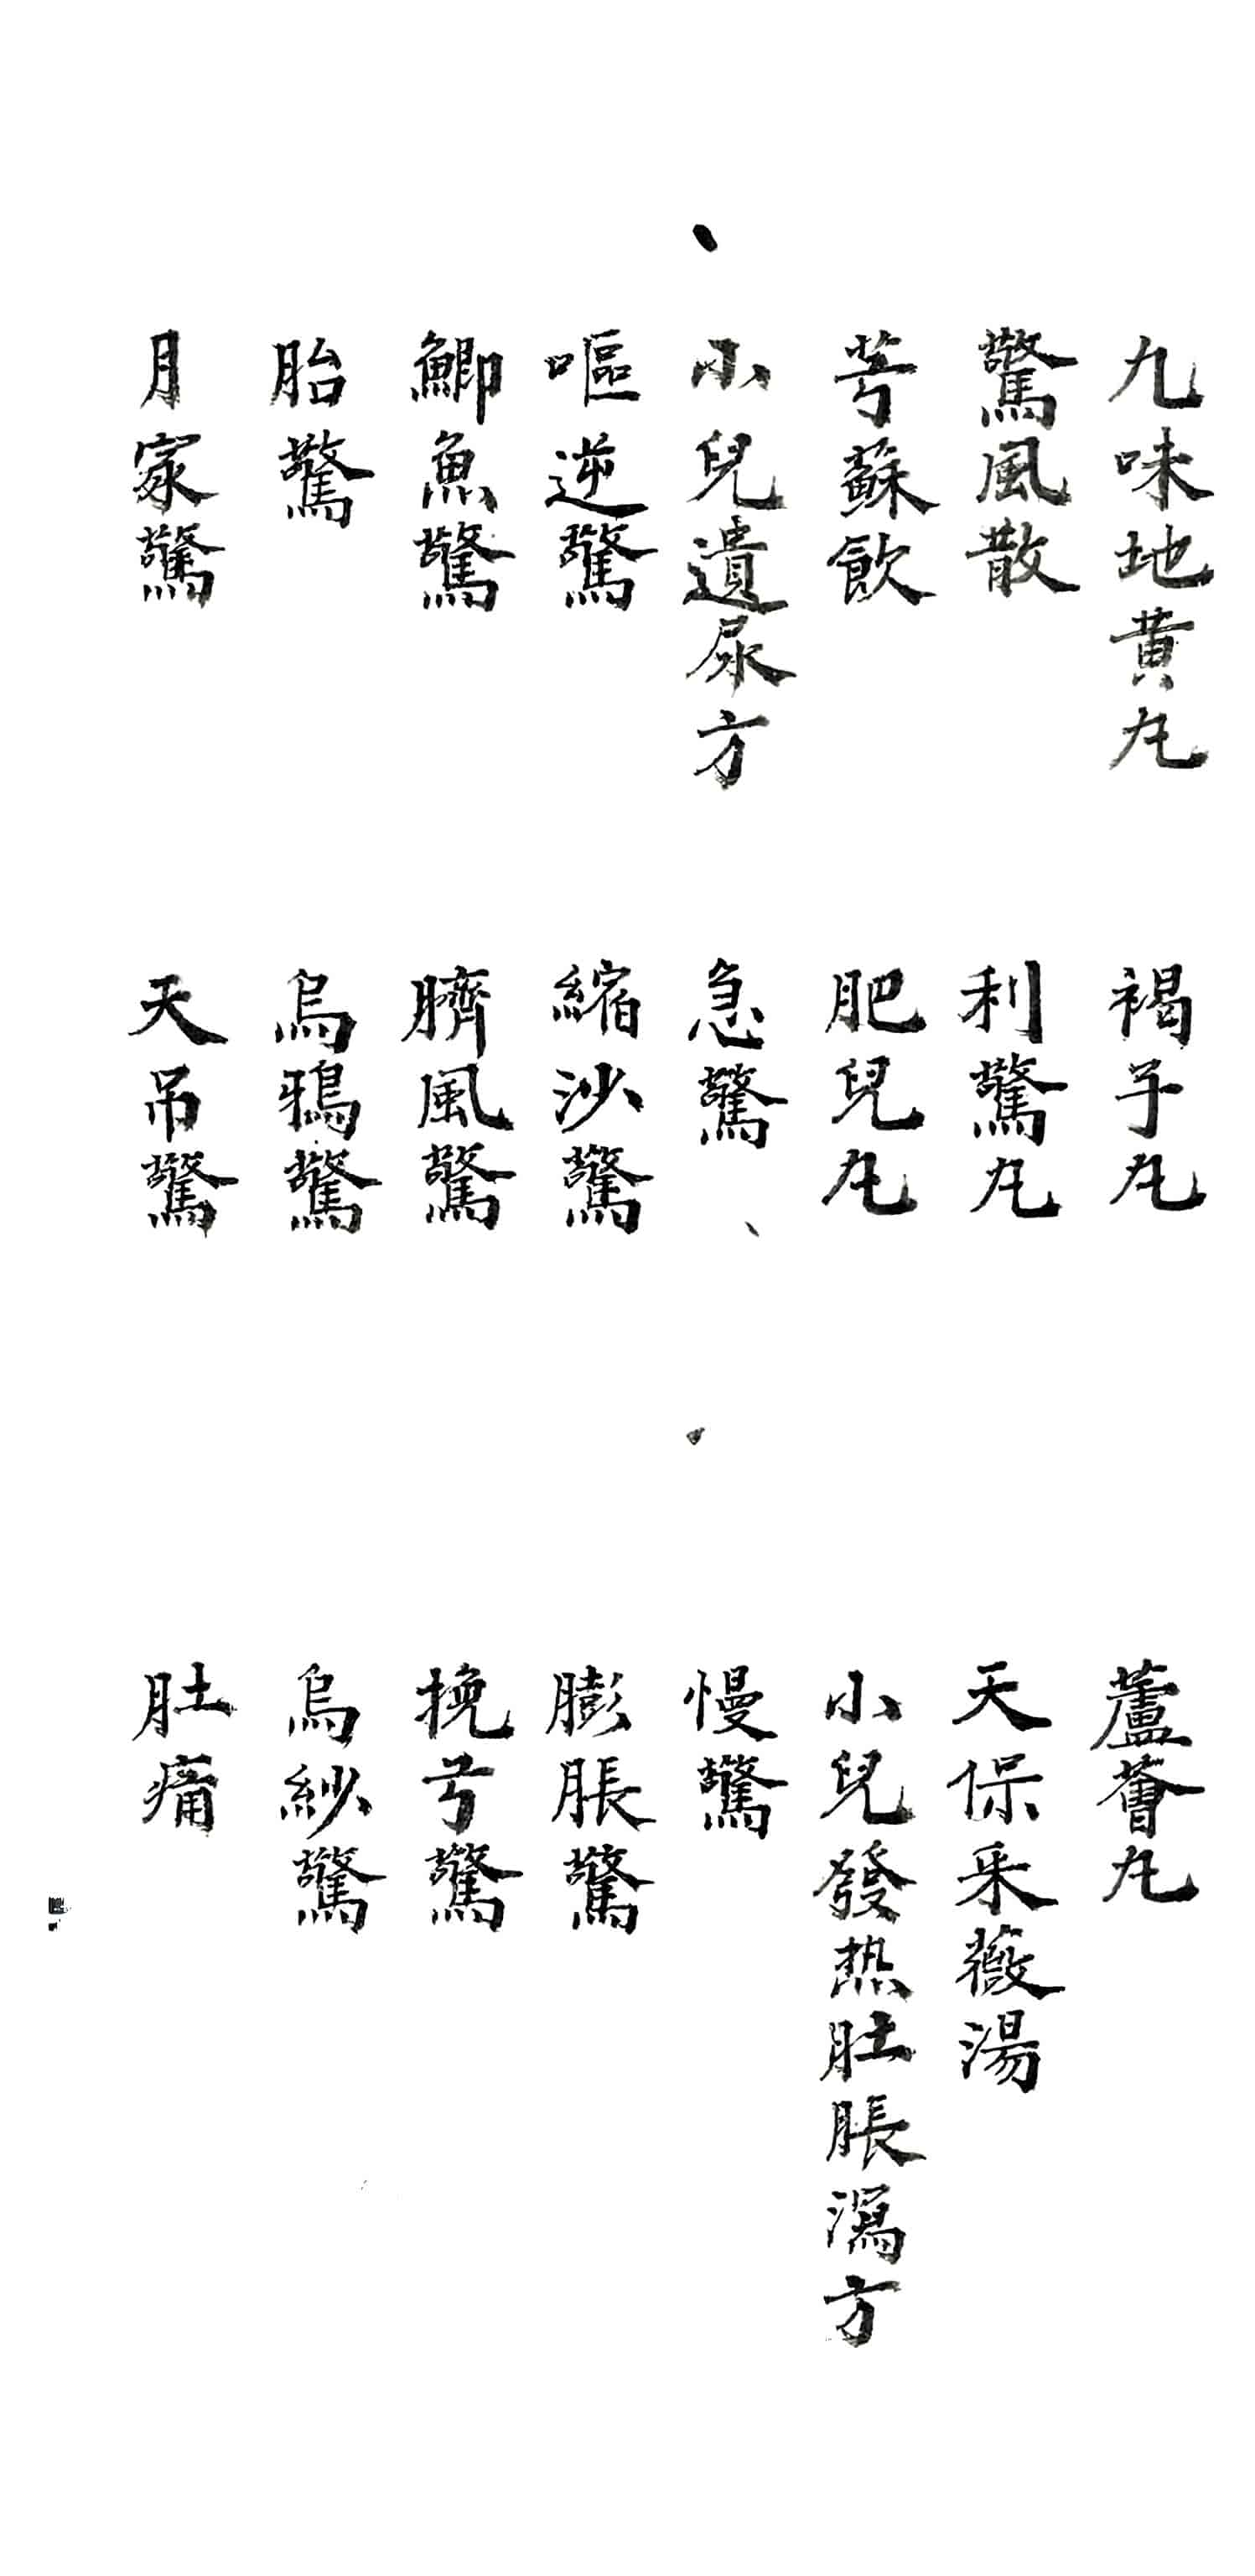 九味地黄丸
褐子丸
蘆薈丸
驚風散
利驚丸
天保采薇湯
芎蘇飲
肥兒丸
小兒發热肚脹瀉方
小兒遺尿方
急驚
慢驚
嘔逆驚
縮沙驚
膨脹驚
鯽魚驚
臍風驚
挽弓驚
胎驚
烏鴉驚
烏紗驚
月家驚
天吊驚
肚痛